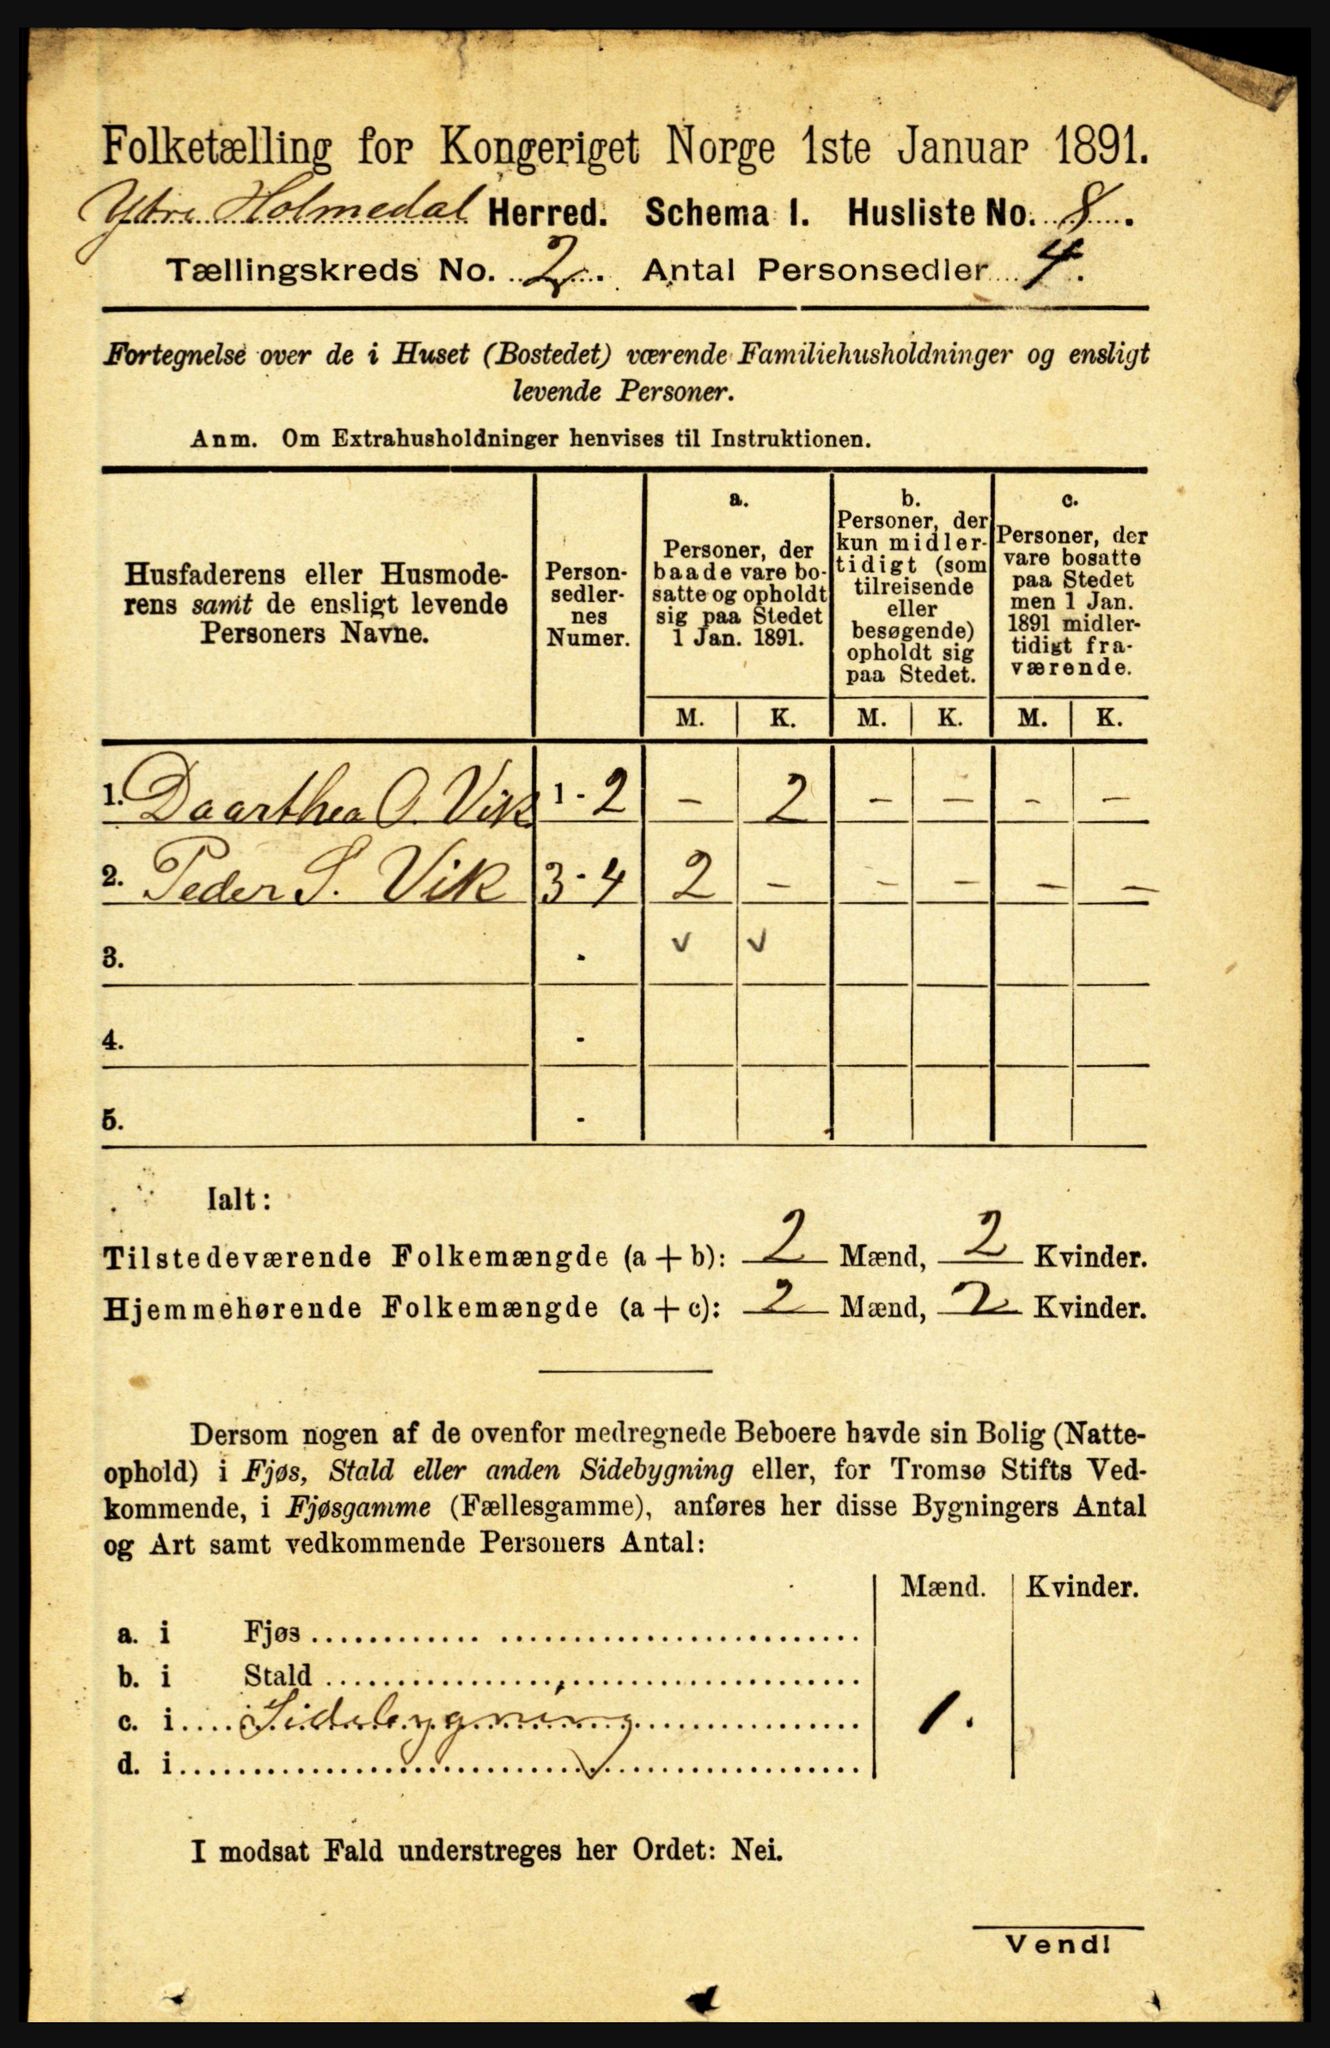 Folketælling for Kongeriget Norge 1ste Januar 1891.
Ytre Holmedal Herred. Schema I. Husliste No. 8.
Tællingskreds No. 2. Antal Personsedler 4.
Fortegnelse over de i Huset (Bostedet) værende Familiehusholdninger og ensligt
levende Personer.
Anm. Om Extrahusholdninger henvises til Instruktionen.
Husfaderens eller Husmode-
rens samt de ensligt levende
Personers Navne.
Person-
sedler-
nes
Numer.
a.
Personer, der
baade vare bo-
satte og opholdt
sig paa Stedet
1 Jan. 1891.
b.
Personer, der
kun midler-
tidigt (som
tilreisende
eller
besøgende)
opholdt sig
paa Stedet.
c.
Personer, der
vare bosatte
paa Stedet
men 1 Jan.
1891 midler-
tidigt fra-
værende.
M. K. M. K. M. K.
1. Daarthea O. Vik 1 - 2 – 2 – – – –
2. Peder S. Vik 3 - 4 2 – – – – –
3. - v v
4. -
5. -
Ialt:
Tilstedeværende Folkemængde (a + b): 2 Mænd, 2 Kvinder.
Hjemmehørende Folkemængde (a + c): 2 Mænd, 2 Kvinder.
Dersom nogen af de ovenfor medregnede Beboere havde sin Bolig (Natte-
ophold) i Fjøs, Stald eller anden Sidebygning eller, for Tromsø Stifts Ved-
kommende, i Fjøsgamme (Fællesgamme), anføres her disse Bygningers Antal
og Art samt vedkommende Personers Antal:
Mænd. Kvinder.
a. i Fjøs
b. i Stald
c. i Sidebygning 1.
d. i
I modsat Fald understreges her Ordet: Nei.
Vend!